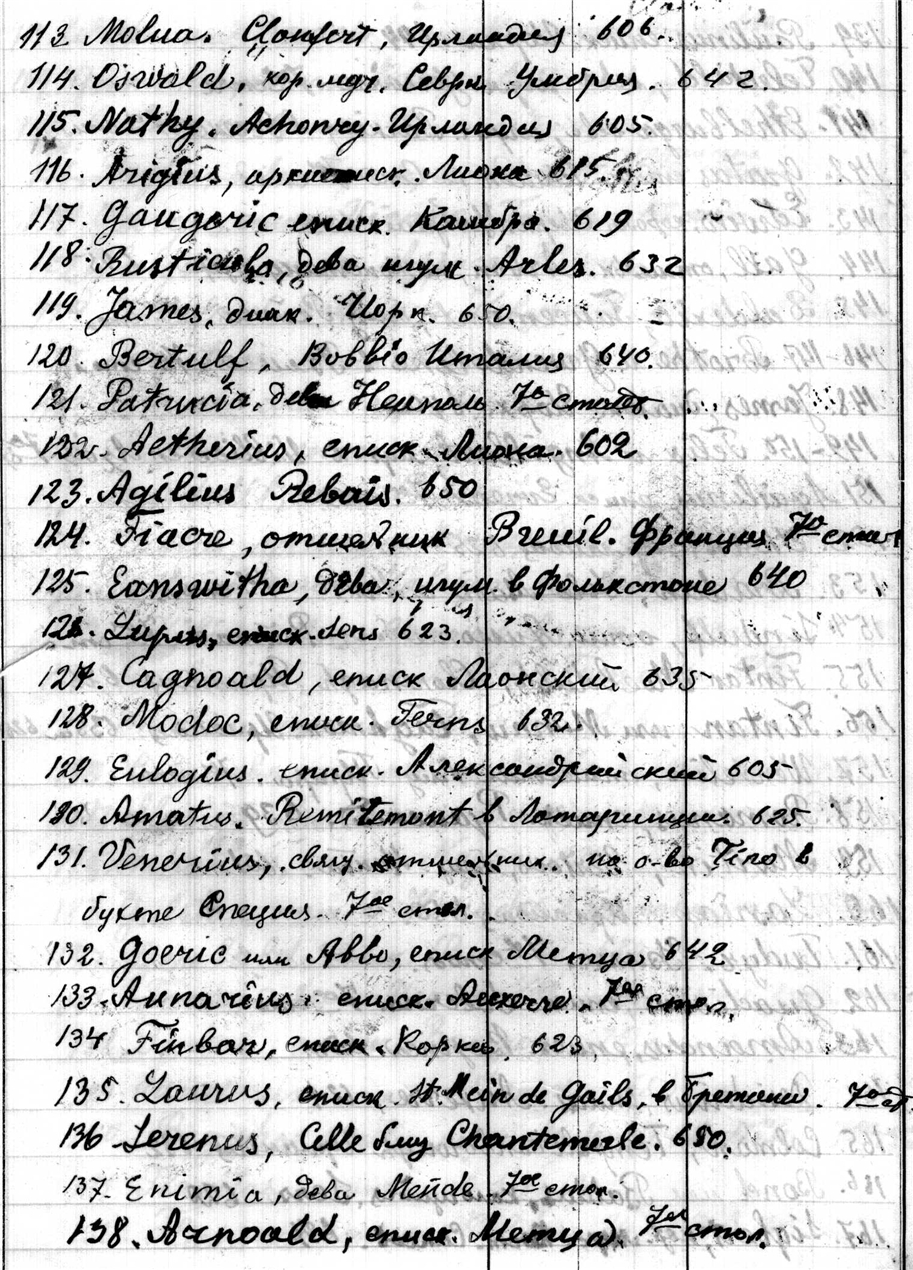 113 Molua. Clonfert, Ирландия 606.
114. Oswald, кор. муч. Северн. Умбрия. 642.
115. Nathy. Achonry. Ирландия 605.
116. Arigius, архиеписк. Лиона 615.
117. Gaugeric еписк. Камбрэ. 619
118. Rusticula, дева игум. Arles. 632
119. James, диак. Иорк. 650.
120. Bertulf, Bobbio Италия 640.
121. Patricia, дева Неаполь 7ое столет.
122. Aetherius, еписк. Лиона. 602
123. Agilius Rebais. 650
124. Fiacre, отшельник Breuil. Франция 7ое стол
125. Eanswitha, дева, игум. в Фолькстоне 640
126. Lupus, еписк. Sens 623.
127. Cagnoald, еписк Лаонский 635
128. Modoc, еписк. Ferns 632.
129. Eulogius. еписк. Александрийский 605
130. Amatus. Remitemont в Лотарингии. 625.
131. Venerius, свящ. отшельник. на о-во Tino в
бухте Специя. 7ое стол.
132. Goeric или Abbo, еписк Метца 642
133. Aunarius еписк. Auxerre. 7ое стол.
134 Finbar, еписк. Корки, 623
135. Laurus, еписк. St. Mein de Gails, в Бретани. 7ое ст.
136 Serenus, Celle близ Chantemerle. 650.
137. Enimia, дева Mende 7ое стол.
138. Arnoald, еписк. Метца. 7ое стол.